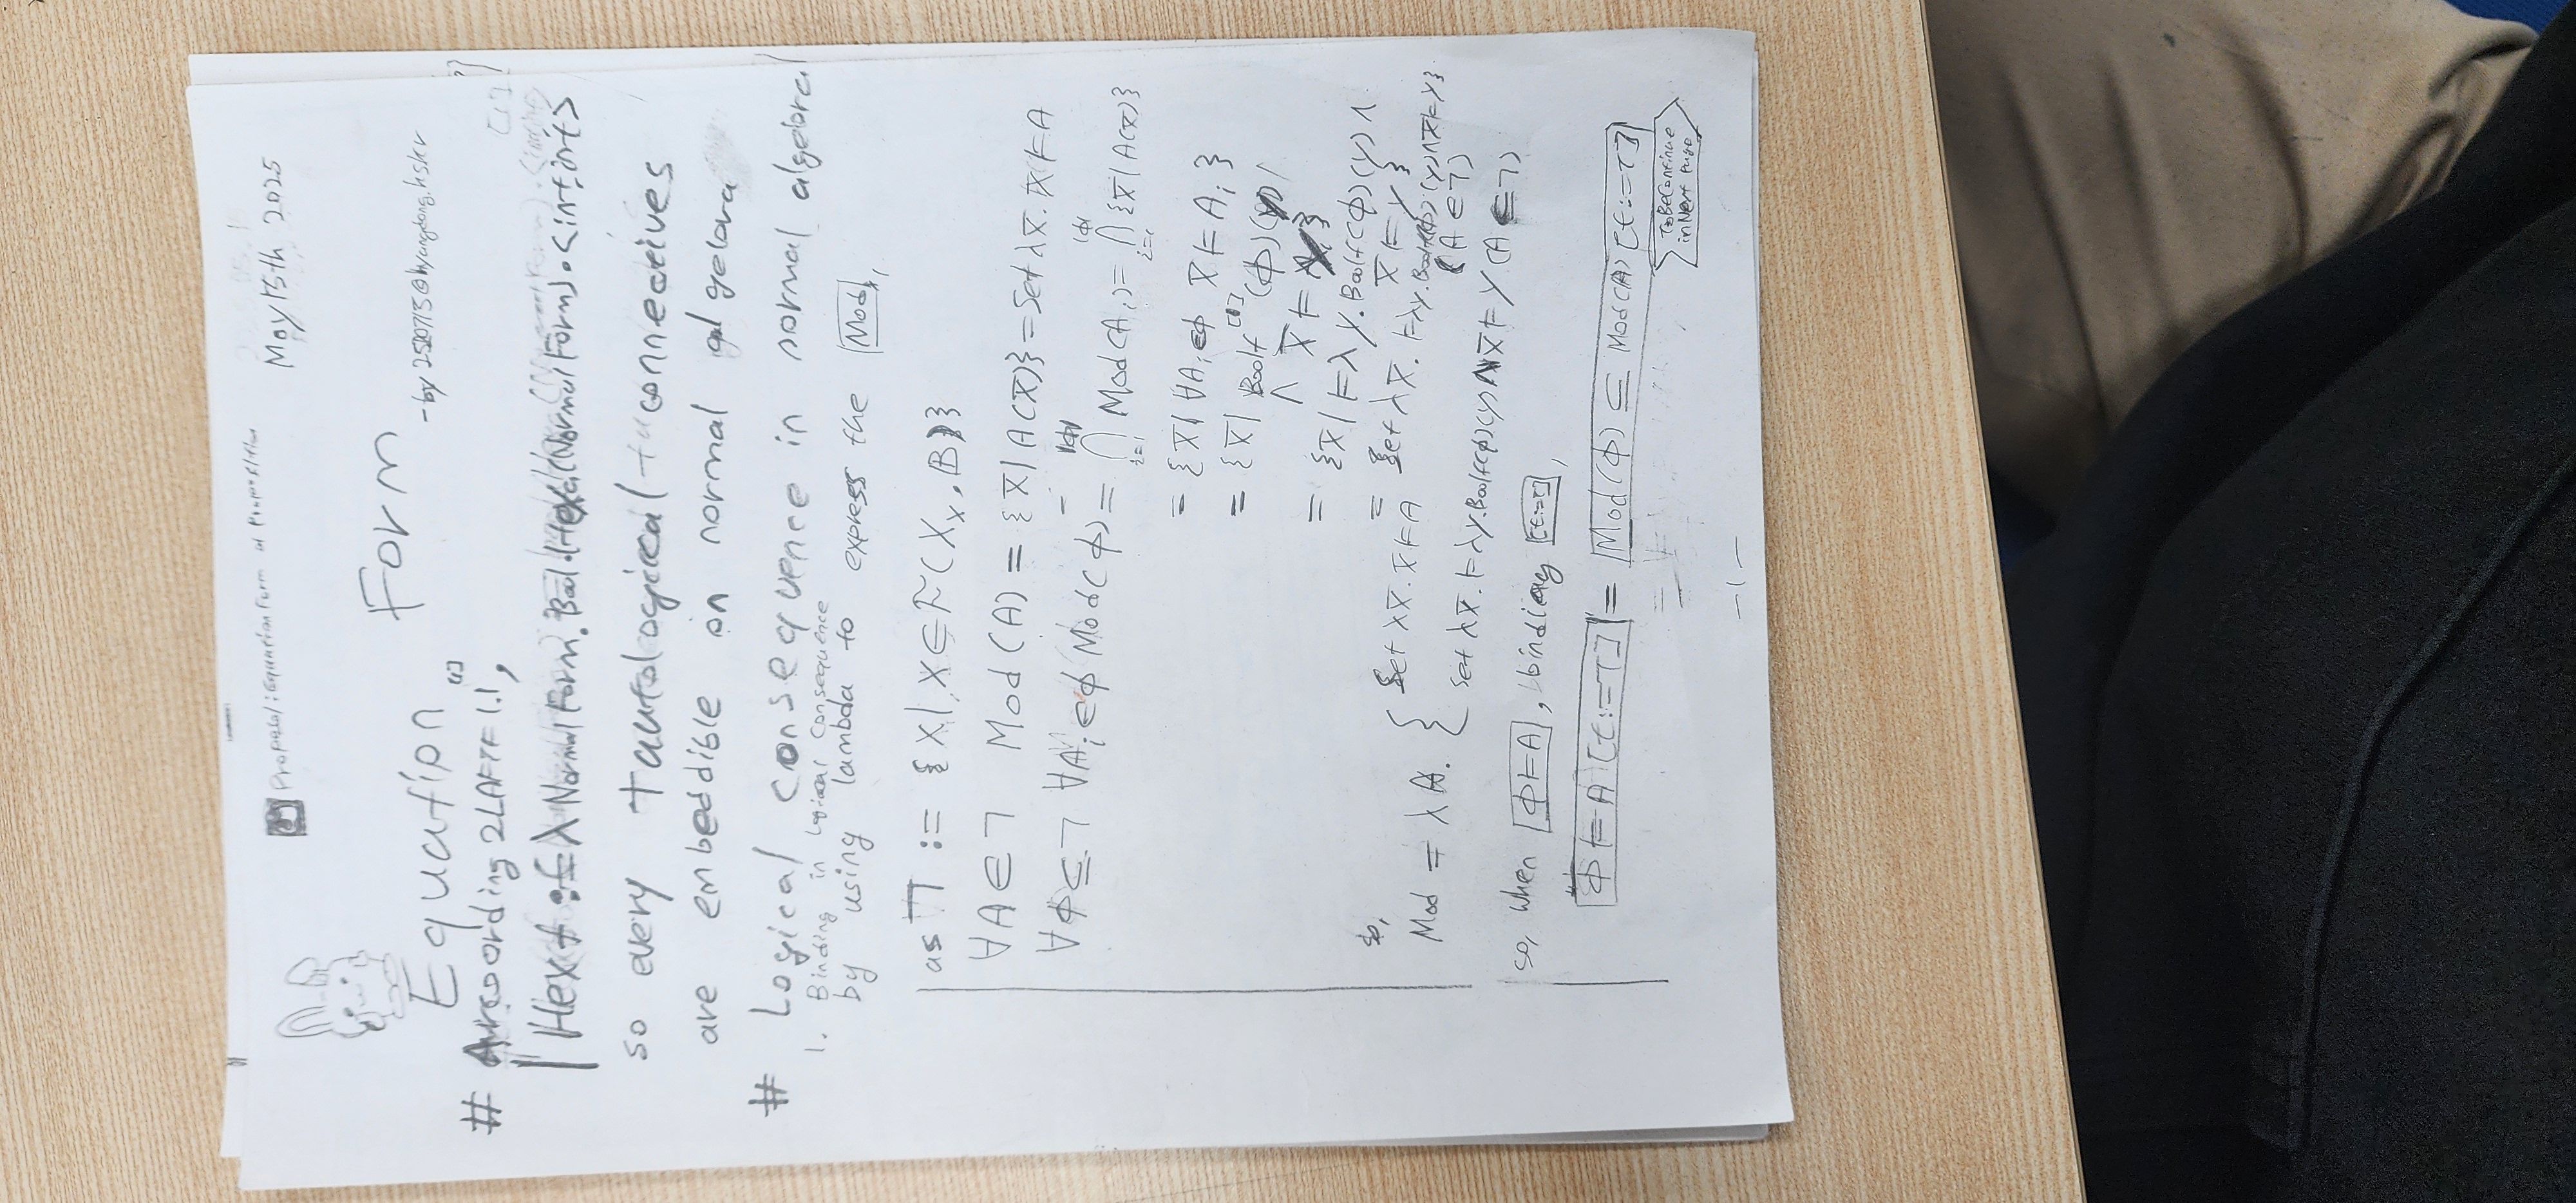 Proposal: Equation Form of Proposition
May 15th 2025
Equation Form
# According 2LAFTF 1.1,
Hex f := λ Normal Form. Bool. Hexa(Normal Form). <int, int>
so every tautological connectives
are embeddible on normal algelbra
# Logical consequence in normal algebra
1. Binding in Logical Consequence
by using lambda to express the Mod,
as ℸ := {X | X ∈ F(X_x, B)}
∀A∈ℸ Mod(A) = {x̄ | A(x̄)} = Set λx̄. x̄ ⊨ A
∀Φ⊆ℸ ∀A_i∈Φ Mod(Φ) = ⋂_{i=1}^{|Φ|} Mod(A_i) = ⋂_{i=1}^{|Φ|} {x̄ | A(x̄)}
= {x̄ | ∀A_i∈Φ x̄ ⊨ A_i}
= {x̄ | Boolf^[1](Φ)
∧ x̄ ⊨
= {x̄ | ⊨ λy. Boolf(Φ)(y) ∧
x̄ ⊨ y}
= Set λx̄. ⊨ λy. Boolf(Φ)(y) ∧ x̄ ⊨ y}
so,
Mod = λA. { Set λx̄. x̄ ⊨ A (A ∈ ℸ)
Set λx̄. ⊨ λy. Boolf(Φ)(y) ∧ x̄ ⊨ y (A ⊆ ℸ)
so, when Φ ⊨ A, binding [t:=τ],
Φ ⊨ A [t:=τ] = Mod(Φ) ⊆ Mod(A) [t:=τ]
ToBeContinue
inNext Page
-1-